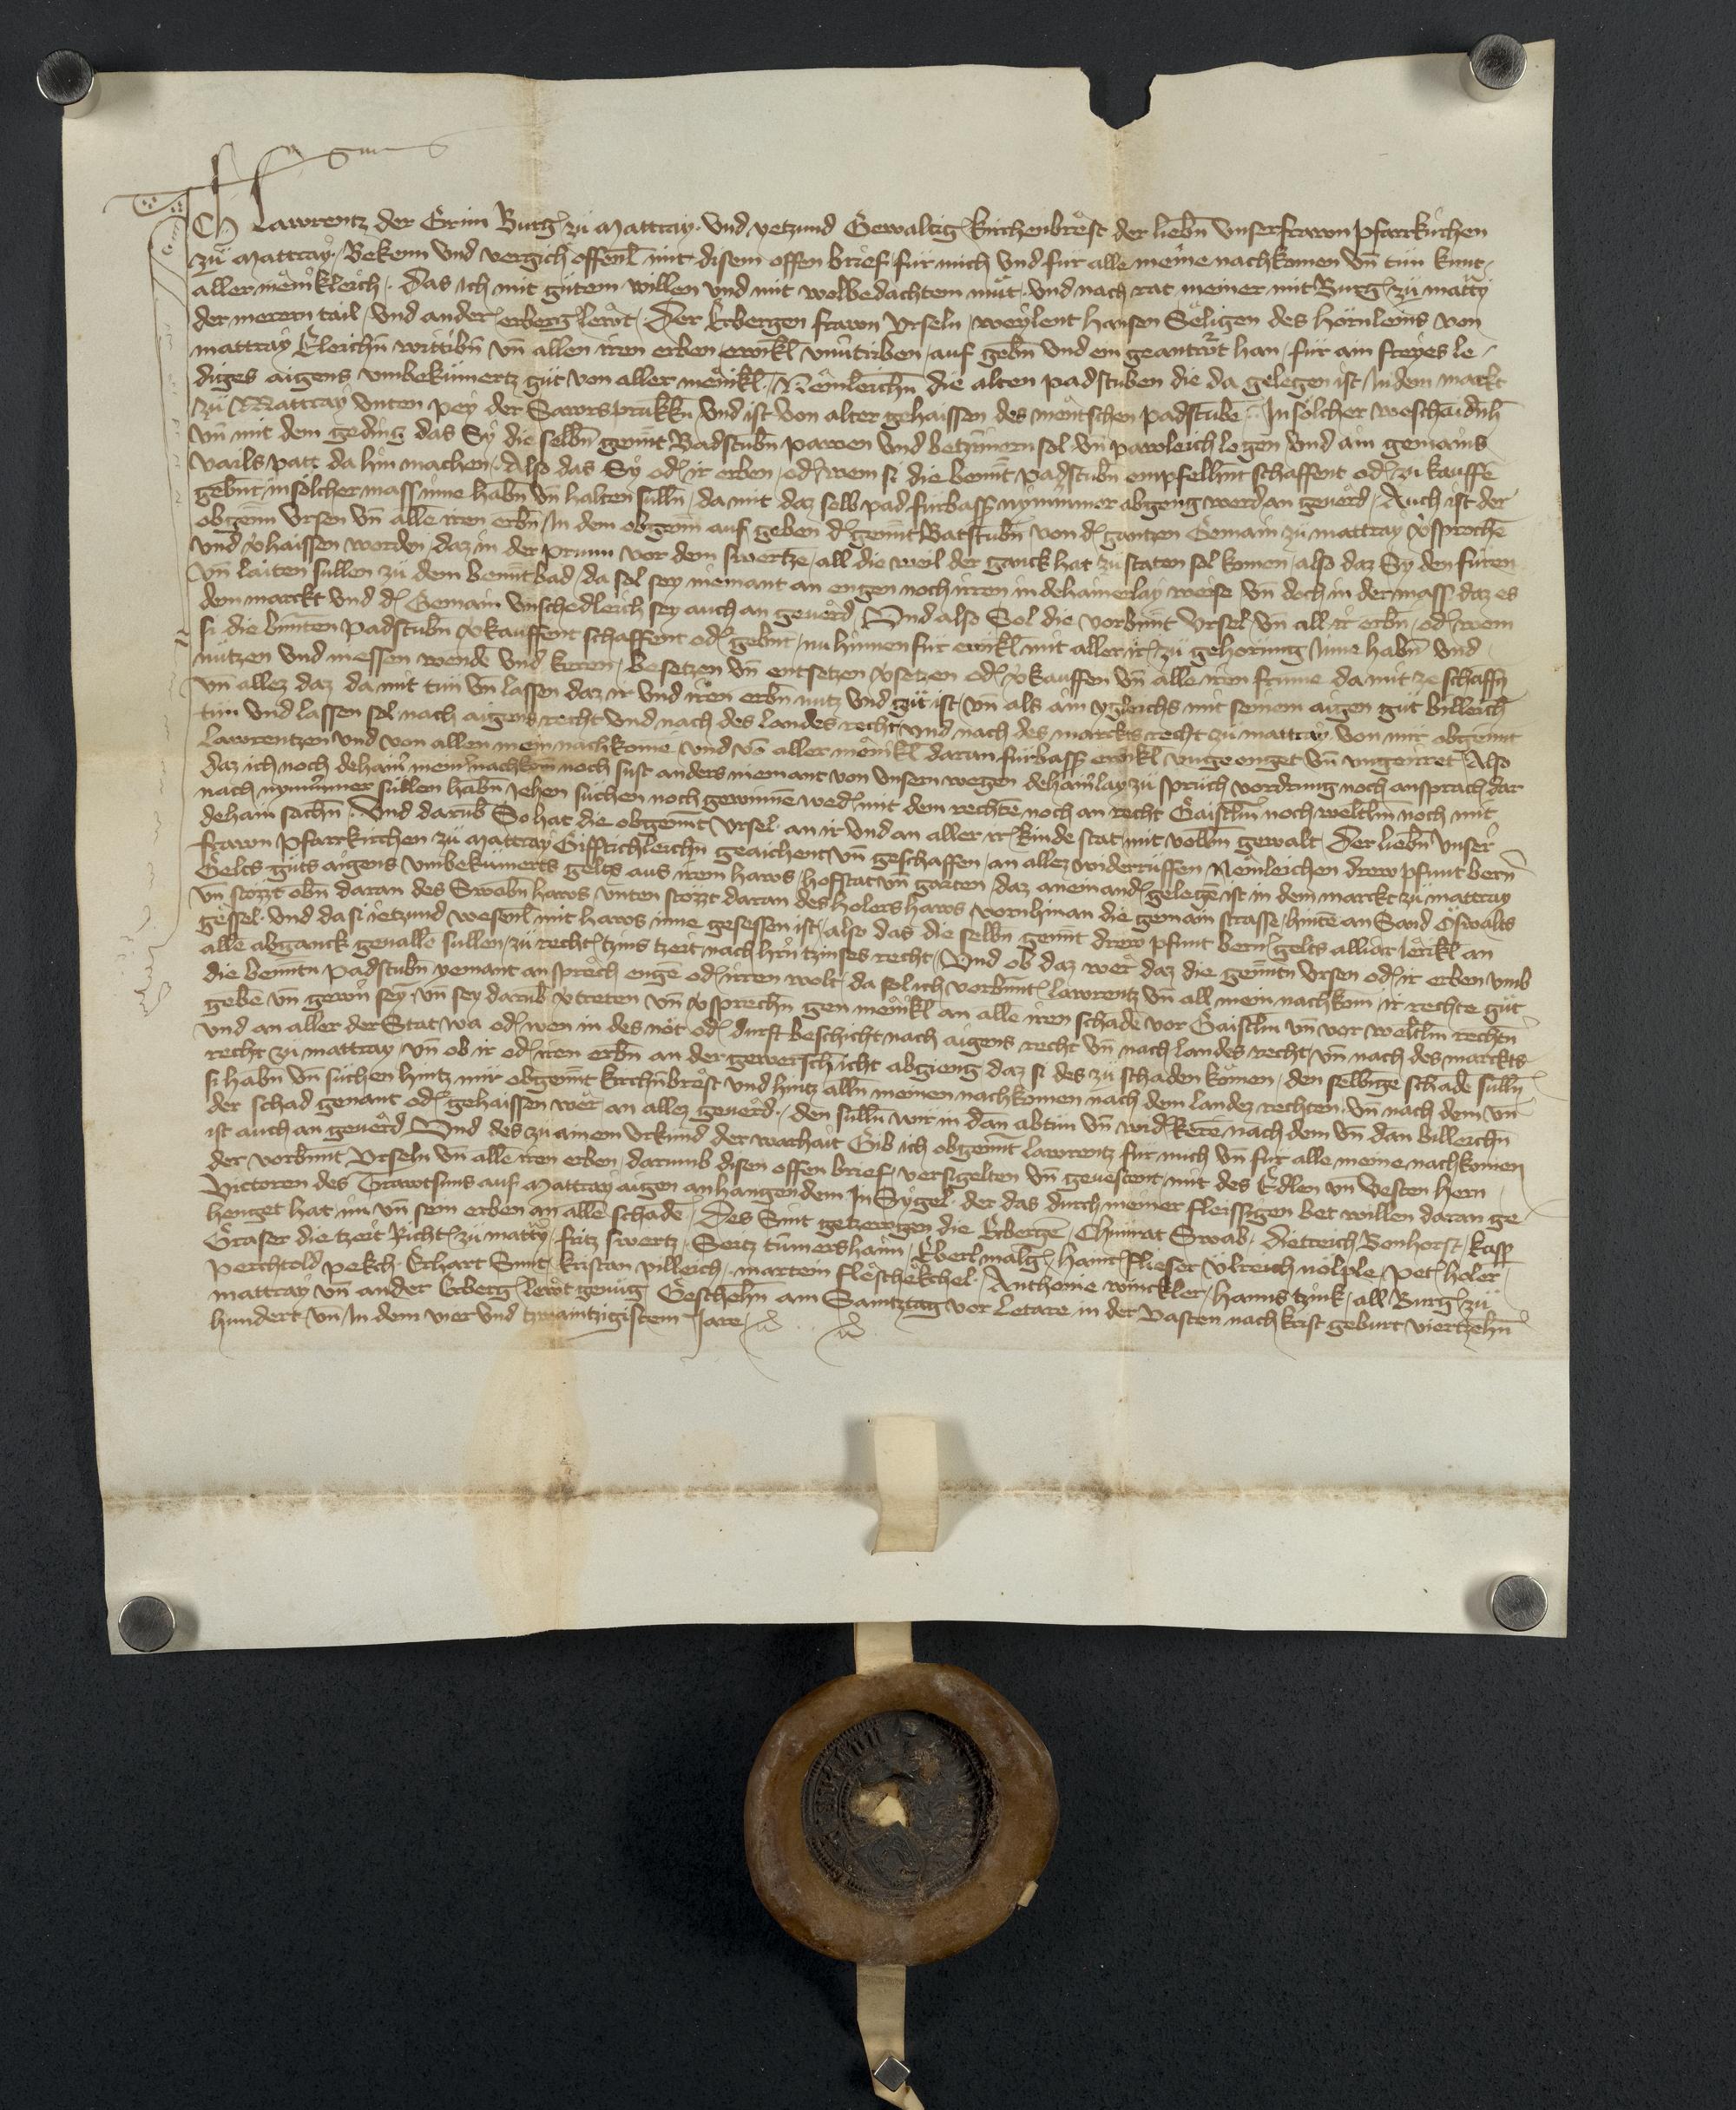 Ich Lawrentz der Grim Burg̾ zu Mattray. Vnd yetzund Gewaltig̾ kirchenbrȯst der liebn̄ vnserfrawn pfarrkirchen
zů Mattray. Bekenn vnd vergich offenl̄ mit disem offen brief für mich vnd für alle meine nachkomen vn̄ tůn kunt
aller mȇnikleich. das ich mit gůtem willen vnd mit wolbedachtem můt. vnd nach rat meiner mit Burg̾ zů mattr̄y
der merern tail vnd ander̾ erberg̾ lewt. Der Erbergen frawn Vrseln, weylent Hansen Seligen des Hörnleins von
mattray Eleichn̄ wittibn̄ vn̄ allen iren erben, ewikl̄ vnu̇rtriben, auf gebn̄ vnd ein geantwrt han, für ain freyes le
diges aigens vmbeku̇mertz gůt von aller menikl̄. Nemleichn̄ die alten padstuben die da gelegen ist In dem markt
zů Mattray vnten pey der Sawrsprukkn̄ vnd ist von alter gehaissen des mentschen padstubē. In sölcher weschaidnh̄
vn̄ mit dem geding das Sy die selbn̄ genn̄t Badstubn̄ pawen vnd betzimern sol vn̄ pawleich legen vnd ain gemains
vails patt da hin machen. Also das Sy od̾ ir erben, od̾ wem si die benn̄t padstubn̄ empfellhnt schaffent od̾ zu kauffē
gebnt, in solcher mass inne habn̄ vn̄ halten sulln̄, da mit daz selb pad fürbass nymmer abgeng werd an geuerd. Auch ist der
obgenn̄ Vrseln vn̄ allē iren erbn̄ In dem obgenn̄ auf geben d̾ genn̄t Batstubn̄ von d̾ gantzen Gemain zů mattray v̾sprochē
vnd v̾haissen worden, daz in der prunn vor dem swertze, all die weil der ganck hat zu staten sol komen, also daz Sy den füren
vn̄ laiten sullen zů dem benn̄t bad, da sol sey niemant an engen noch irren in dehainerlay weise vn̄ doch in der mass daz es
dem marckt vnd d̾ Gemain vnschedleich sey auch an geuerd. Vnd also Sol die vorbnn̄t Vrsel vn̄ all ir erbn̄, od̾ wem
si die bnn̄ten padstubn̄ v̾kauffent schaffent od̾ gebnt, nu hinnen für ewikl̄ mit aller ir̾ zů gehorung Inne habn̄ vnd
nützen vnd niessen wendē vnd keren, besetzen vn̄ entsetzen v̾setzen od̾ v̾kauffen vn̄ alle iren frume da mit ze schaffn̄
vn̄ allez daz da mit tůn vn̄ lassen daz ir vnd iren erbn̄ nutz vnd gůt ist, vn̄ als ain ygleichs mit seinem aigen gůt billeich
tůn vnd lassen sol nach aigens recht vnd nach des landes recht vnd nach des marckts recht zů mattray. von mir obgenn̄t
Lawrentzen vnd von allen mein nachkomē, vnd vō aller menikl̄ daran fürbass ewikl̄ vngeenget vn̄ vngeirret. Also
daz ich noch dehain̾ mein̾ nachkom̄ noch sust anders niemant von vnsern wegen dehain̾lay zů sprüch vordrung noch ansprach dar
nach nymmer süllen habn̄ Jehen süchen noch gewinnē wed̾ mit dem rechtē noch an recht Gaistlm̄ noch weltlm̄ noch mit
dehain sachn̄. Vnd darūb So hat die obgenn̄t Vrsel. an ir vnd an aller ir̾ kinde stat mit volln̄ gewalt Der liebn̄ vnser
frawn Pfarrkirchen zů Mattray Gifftichleichn̄ geaichent vn̄ geschaffen, an allez widerrüffen Nemleichen drew pfunt bern̾
Gelts gůts aigens vmbeku̇merts gelts aus irem haws, hofstat vn̄ garten, daz anein and̾ gelegē ist in dem marckt zů mattray
vn̄ stözzt obn̄ daran des Swabn̄ haws, vnten stözzt daran des holers haws vorn hinan die gemain strasse, hintē an Sand Oswalts
gessel. vnd da si ietzund wesenl̄ mit haws inne gesessen ist, also das die selbn̄ genn̄t drew pfunt bern̾ gelts alliar Jerikl̄ an
alle abganck geuallē sullen, zů recht̾ tzins tzeit nach hr̄n tzinses recht. Vnd ob daz wer daz die genn̄tn̄ Vrsen od̾ ir erben vmb
die benn̄tn padstubn̄ yemant an sprech engē od̾ irren wolt, da sol ich vorbnn̄t̾ Lawrentz vn̄ all mein nachkom̄ ir rechte gůt
gebē vn̄ gewn̄ sey, vn̄ sey darūb v̾treten vn̄ v̾sprechn̄ gen menikl̄ an allē iren schadē vor Gaistlm̄ vn̄ vor weltlm̄ rechtn̄
vnd an aller der Stat wa od̾ wen in des nöt od̾ durft beschicht nach aigens recht vn̄ nach landes recht, vn̄ nach des marckts
recht zu mattray vn̄ ob ir od̾ iren erbn̄ an der gewerschicht abgieng, daz si des zů schaden komen, den selbnge schadē sulln̄
si habn̄ vn̄ suchen hintz mir obgenn̄t kirchnbrȯst vnd hintz alln̄ meinen nachkomen nach dem landez rechten vn̄ nach dem vn̄
der schad genant od̾ gehaissen wer an allez geuerd. den sulln̄ wir in dan abtůn vn̄ wid̾kerē nach dem vn̄ dan billeichn̄
ist auch an geuerd. Vnd des zů ainem vrkund der warhait Gib ich obgenn̄t Lawrentz für mich vn̄ für alle meine nachkomen
der vorbnn̄t Vrseln vn̄ alle iren erben, darumb disen offen brief, versigelten vn̄ geuestent mit des Edlen vn̄ vesten hern
Victoren des Trawtsuns auf Mattray aigen anhangendem In Sygel. der das durch meiner fleissigen bet willen daran ge
henget hat, im vn̄ sein erben an allē schadē. Des Sint getzewgen die Erbergē, Chunrat Swab, Dietreich Bonhorst, Kasp̄
Graser die tzeit Richt̾ zů mattr̄y fritz swertz, Seitz tumershaim, Eberl malg̾, Hainr̾ flieser Vlreich nölple, Pet̾ holer
Perchtold pekch. Erhart Smit, kristan villeich, martein fleschekchel. Anthonie winckler, Hanns tzink, all Burg̾ zů
mattray vn̄ ander Erberg̾ lewt genüg. Geschehn̄ am Samtztag vor Letare in der Vasten nach krist geburt viertzehn̄
hundert vn̄ In dem vier vnd tzwaintzigistem Jare